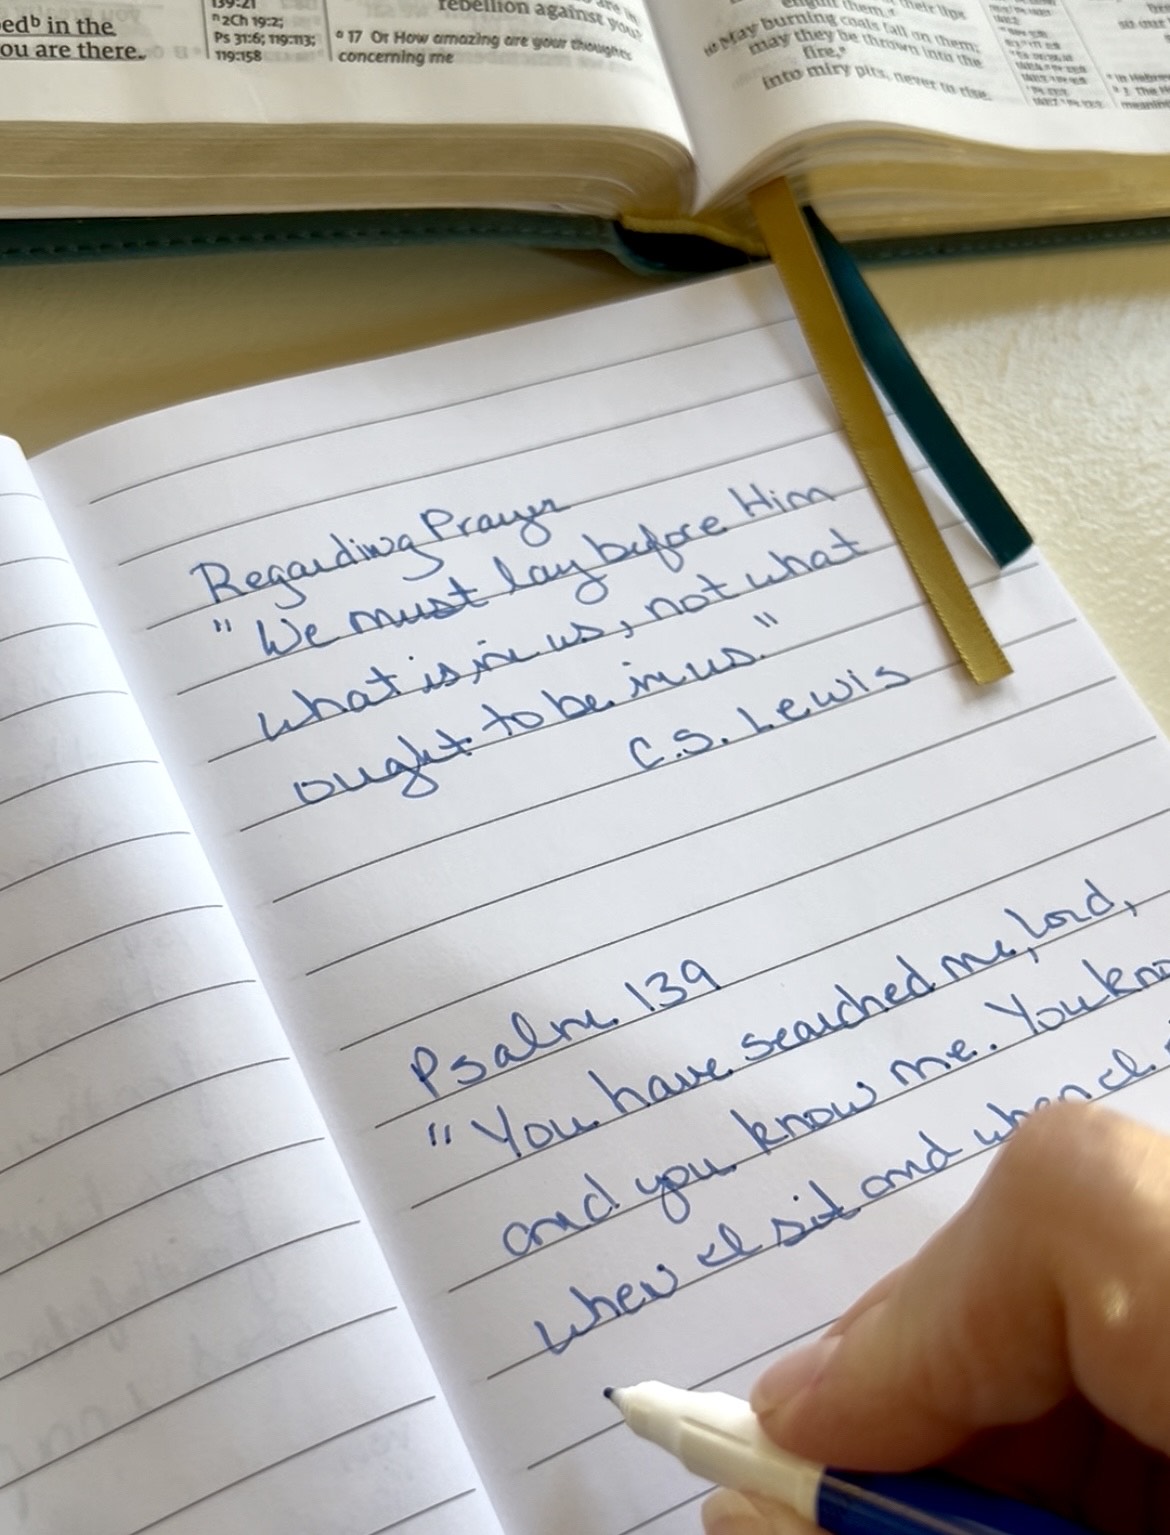 139:21
ⁿ2Ch 19:2;
Ps 31:6; 119:113;
119:158
edᵇ in the
ou are there.
rebellion against you?
ᵃ 17 Or How amazing are your thoughts
concerming me
engulf them.
their lips
May burning coals fall on them;
may they be thrown into the
fire,
into miry pits, never to rise.
Regarding Prayer
"We must lay before Him
what is in us, not what
ought to be in us."
C.S. Lewis
Psalm 139
"You have searched me, Lord,
and you know me. You kno
when I sit and when I